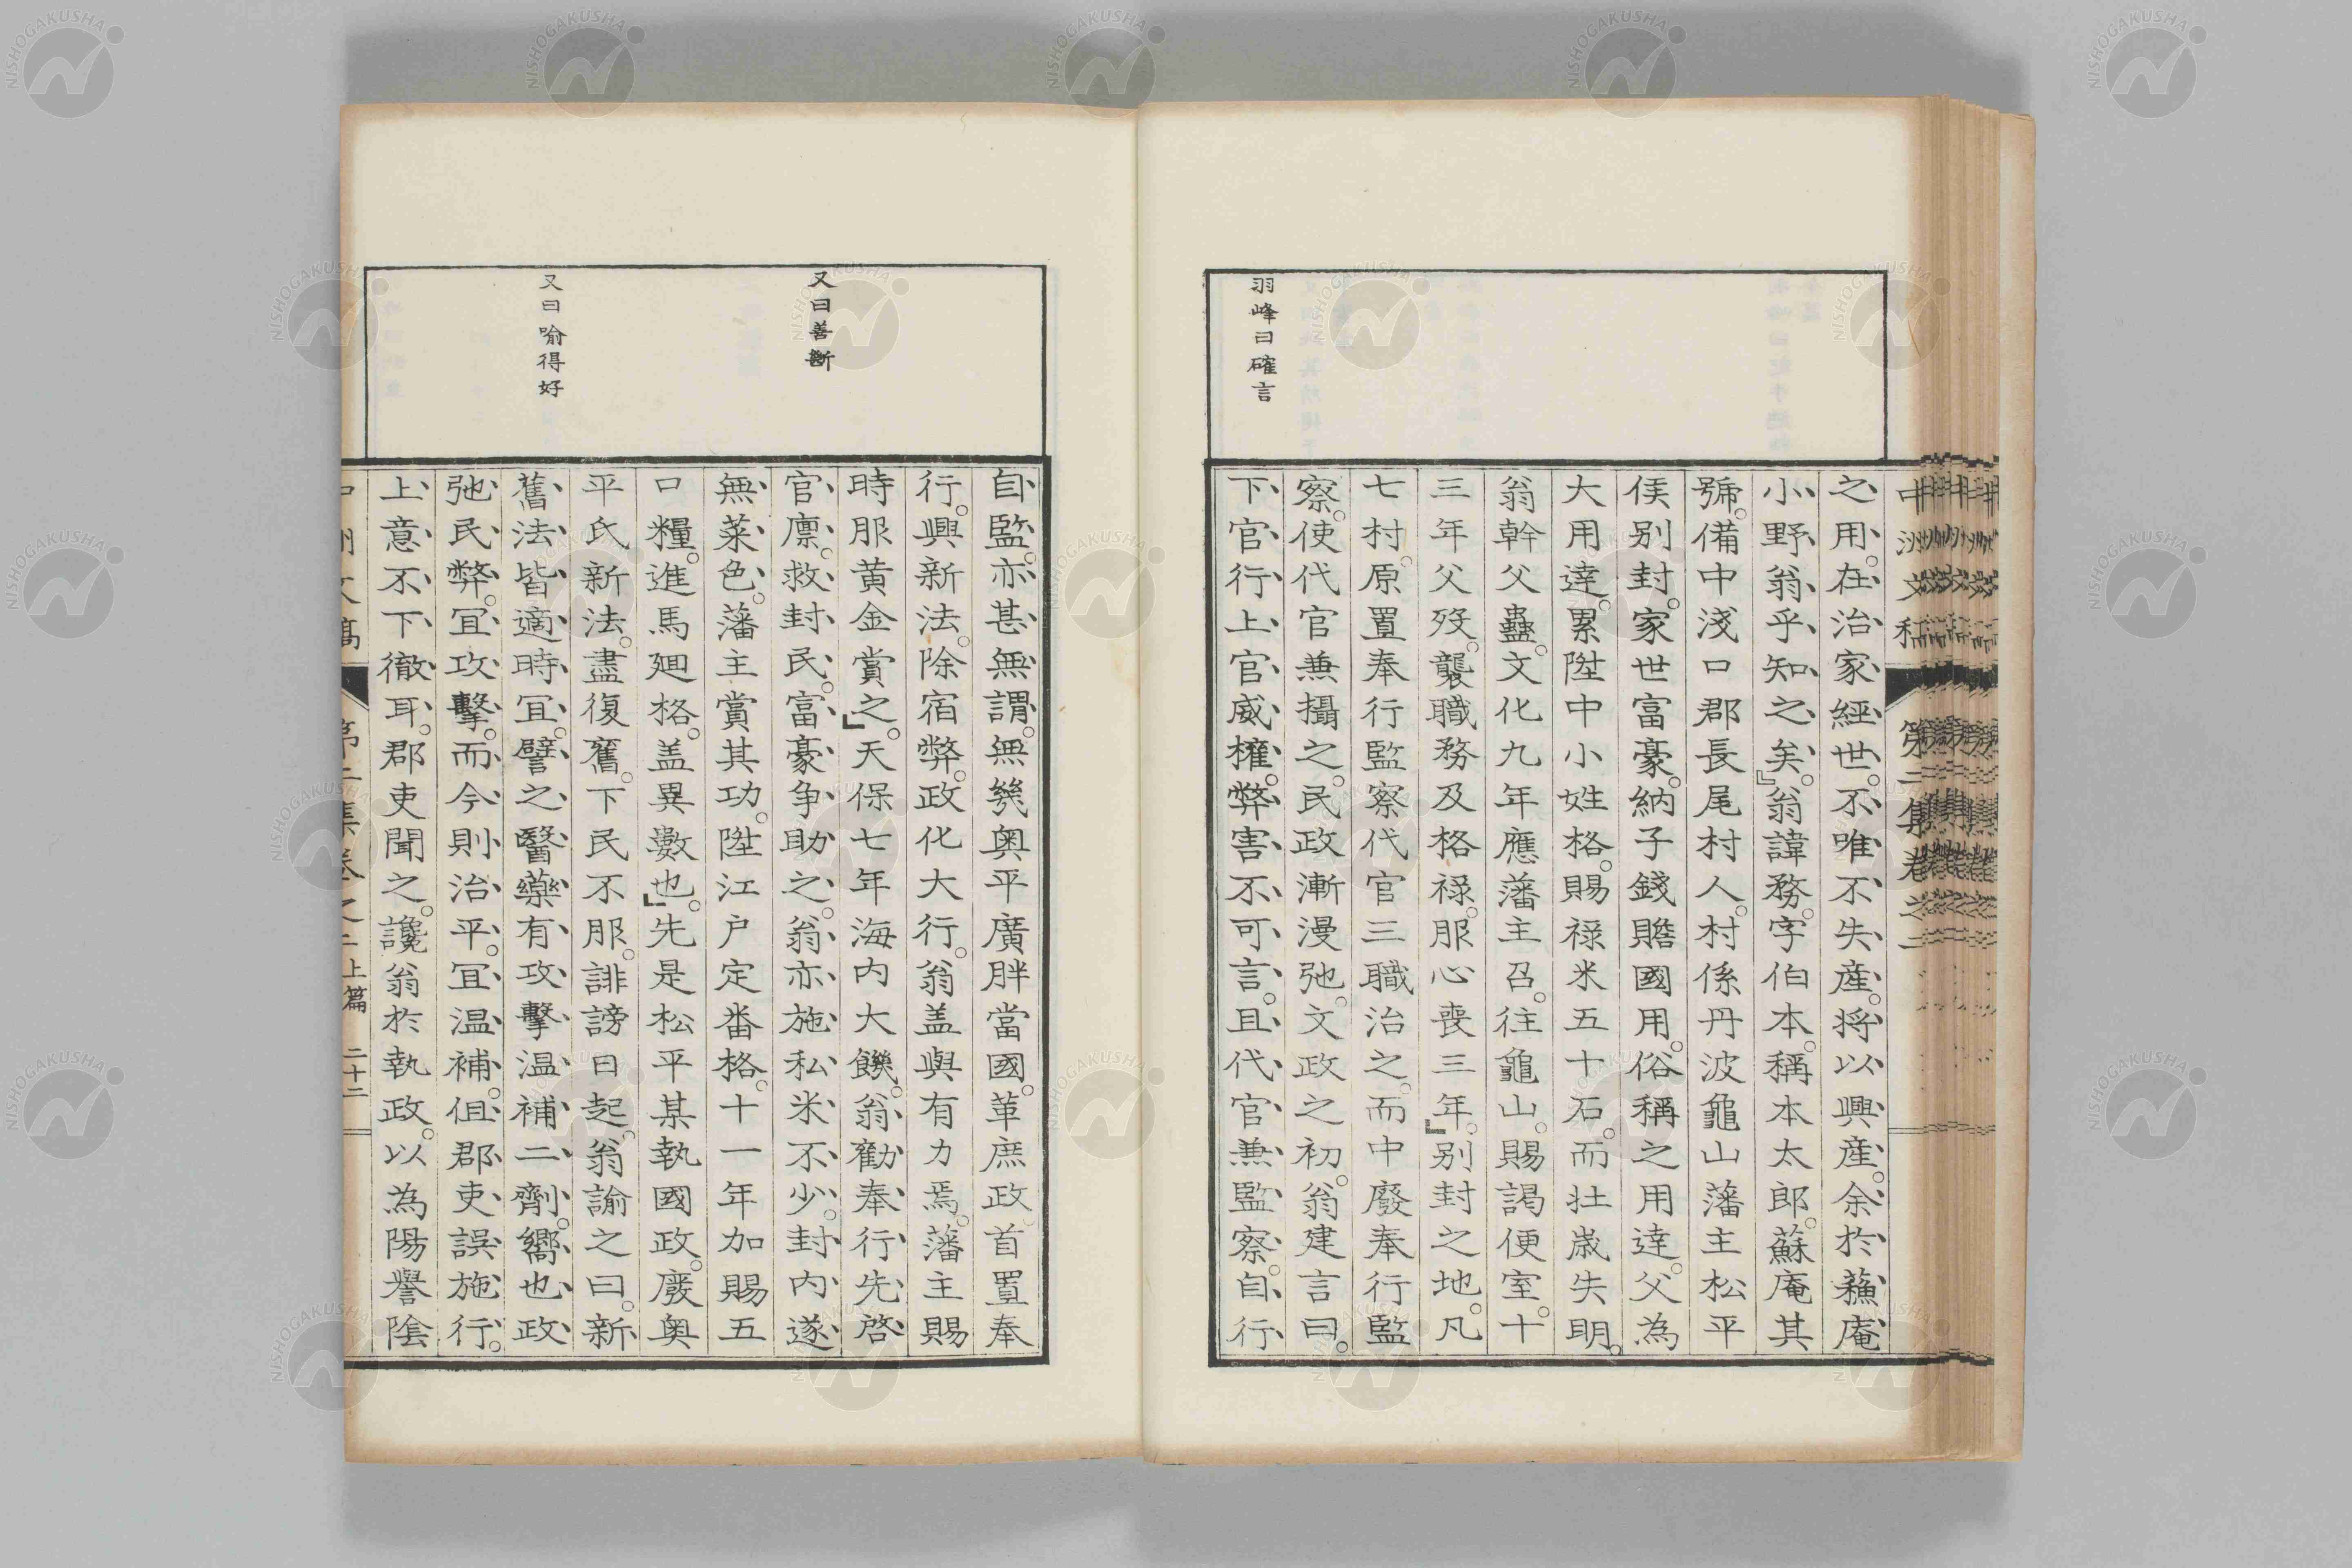 中洲文稿 第二集卷之二
之用。在治家經世。不唯不失產。將以興產。余於蘓庵
小野翁乎知之矣。』翁諱務。字伯本。稱本太郎。蘇庵其
號。備中淺口郡長尾村人。村係丹波龜山藩主松平
侯別封。家世富豪。納子錢贍國用。俗稱之用達。父為
大用達。累陞中小姓格。賜祿米五十石。而壯歲失明。
翁幹父蠱。文化九年應藩主召。往龜山。賜謁便室。十
三年父歿。襲職務及格祿。服心喪三年。』別封之地。凡
七村。原置奉行監察代官三職治之。而中廢奉行監
察。使代官兼攝之。民政漸漫弛。文政之初。翁建言曰。
下官行上官威權。弊害不可言。且代官兼監察。自行
羽峰曰確言
自監。亦甚無謂。無幾奧平廣胖當國。革庶政首置奉
行。興新法。除宿弊。政化大行。翁盖與有力焉。藩主賜
時服黃金賞之。』天保七年海內大饑。翁勸奉行先啓
官廩。救封民。富豪爭助之。翁亦施私米不少。封內遂
無菜色。藩主賞其功。陞江戶定番格。十一年加賜五
口糧。進馬廻格。盖異數也。』先是松平某執國政。廢奧
平氏新法。盡復舊。下民不服。誹謗日起。翁諭之曰。新
舊法皆適時宜。譬之醫藥有攻擊溫補二劑。嚮也政
弛民弊。宜攻擊。而今則治平。宜溫補。但郡吏誤施行。
上意不下徹耳。郡吏聞之。讒翁於執政。以為陽譽陰
又曰善斷
又曰喻得好
第二集卷之二 上篇 二十二